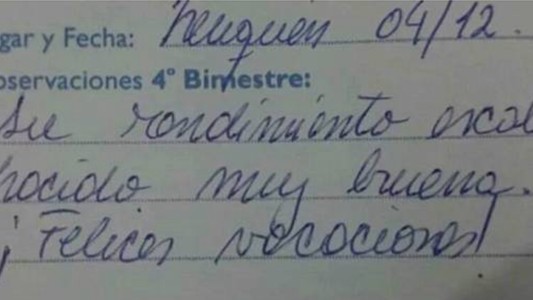 gar y Fecha: Neuquén 04/12.
bservaciones 4° Bimestre:
Su rendimiento escol
hacido muy buena.
¡Felices vacaciones!